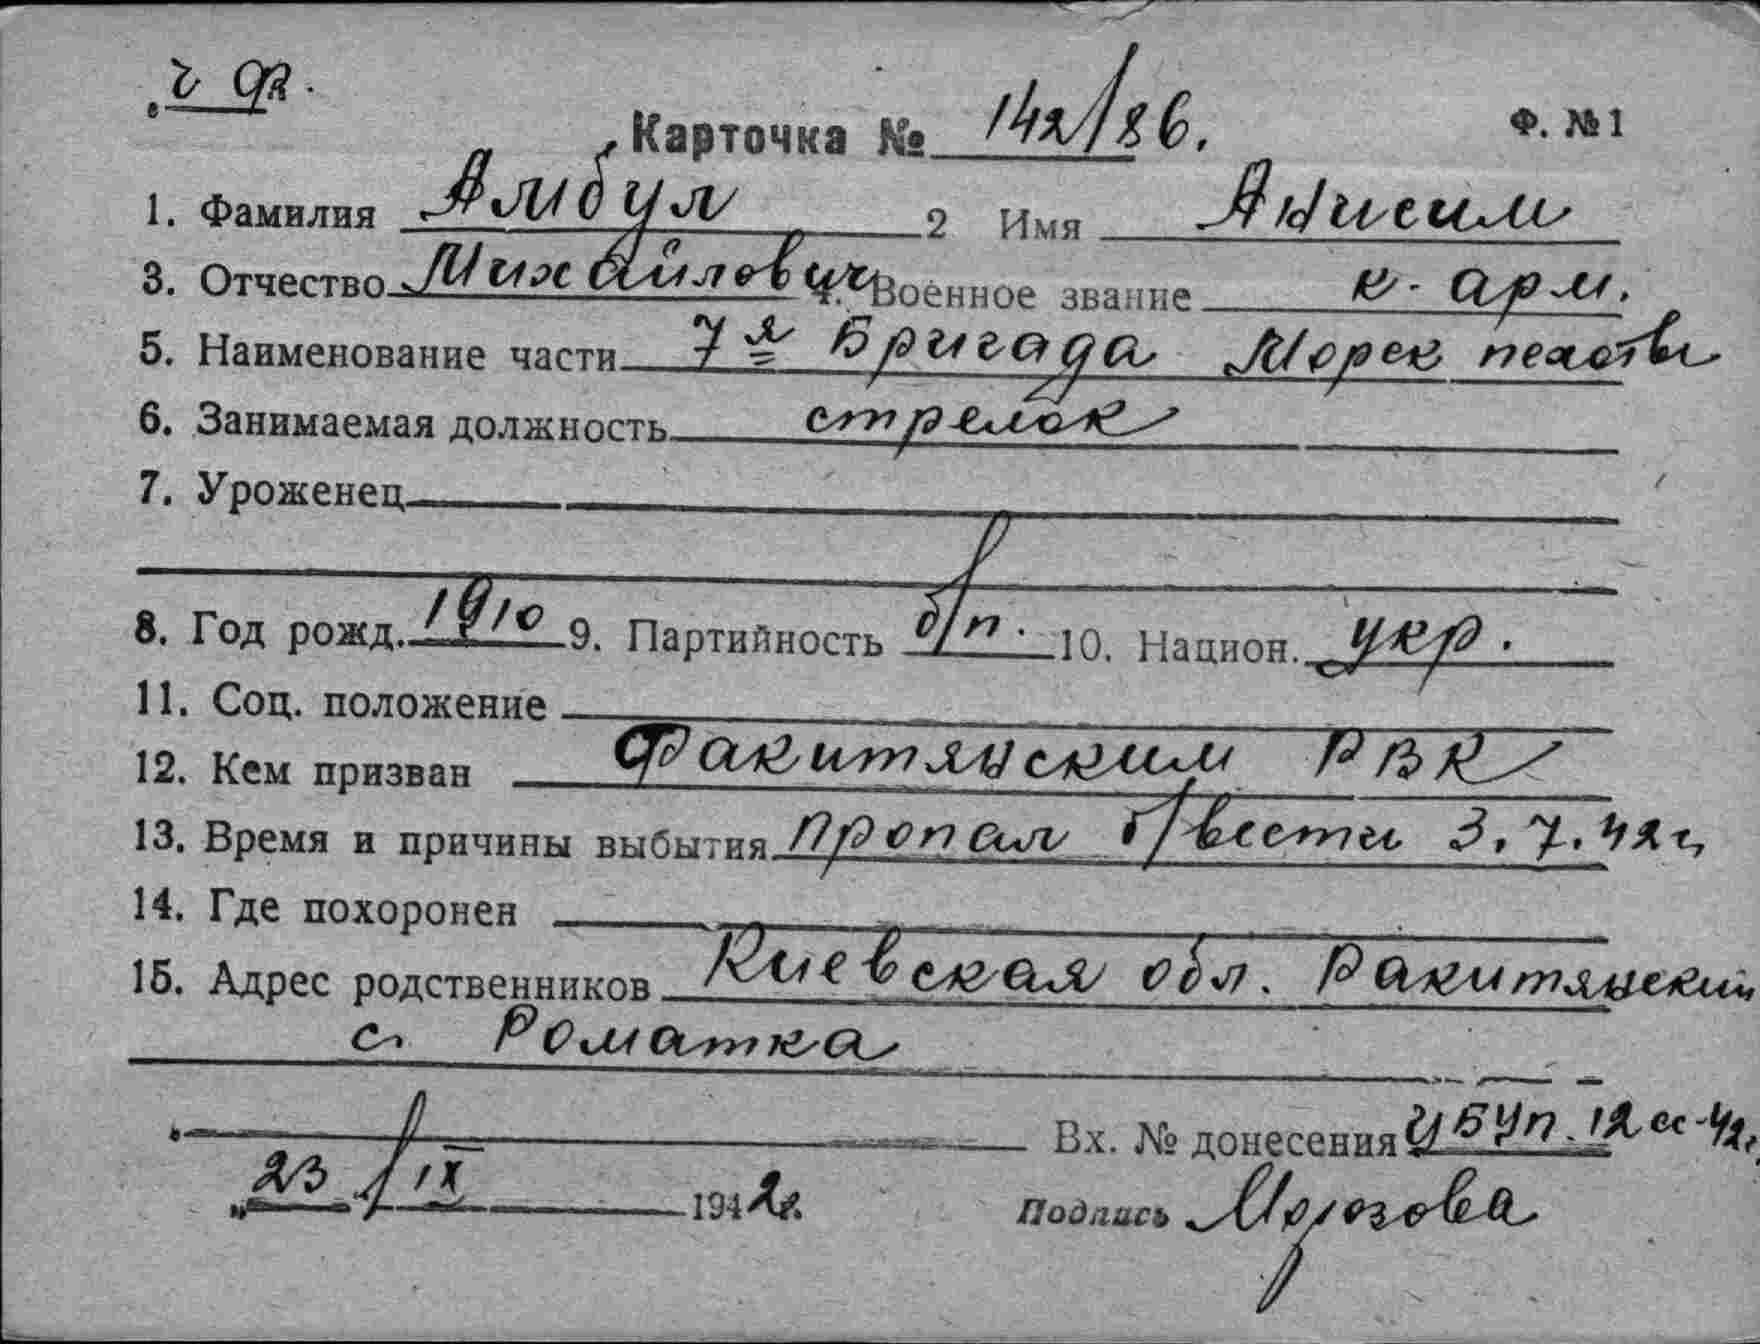 Карточка № 142/86. Ф. №1
1. Фамилия Алибул 2 Имя Анисим
3. Отчество Михайлович 4. Военное звание к. арм.
5. Наименование части 7я Бригада Морск пехоты
6. Занимаемая должность стрелок
7. Уроженец
8. Год рожд. 1910 9. Партийность б/п. 10. Национ. укр.
11. Соц. положение
12. Кем призван Ракитянским РВК
13. Время и причины выбытия пропал б/вести 3.7.42 г.
14. Где похоронен
15. Адрес родственников Киевская обл. Ракитянский
с. Роматка
Вх. № донесения
23/IX 1942 г. Подпись Морозова